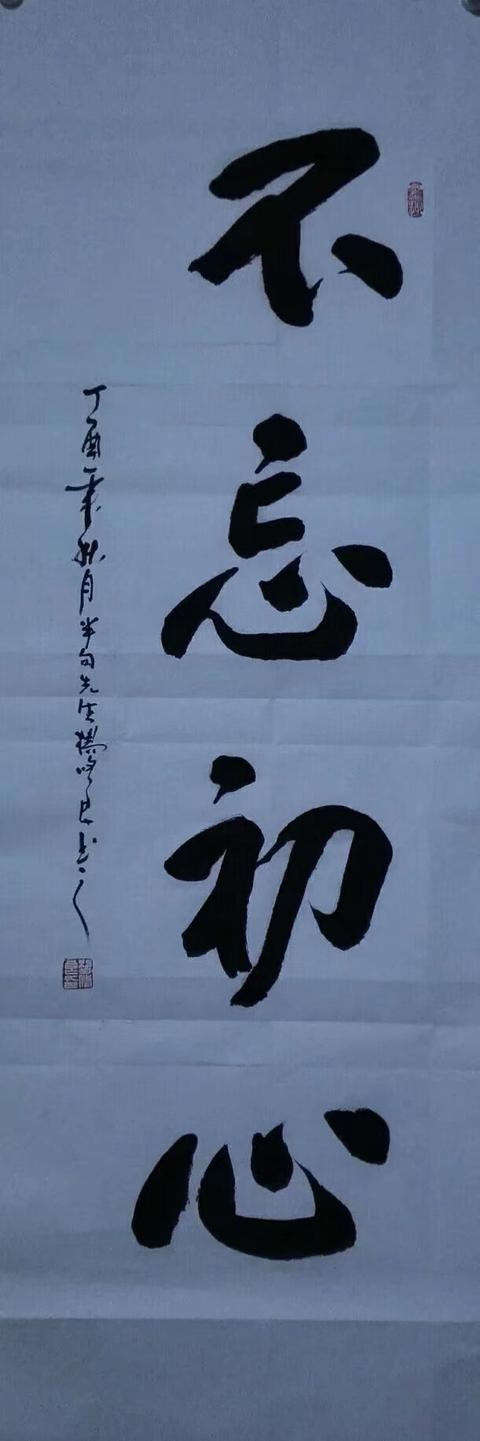 不忘初心
丁酉年秋月半旬先生